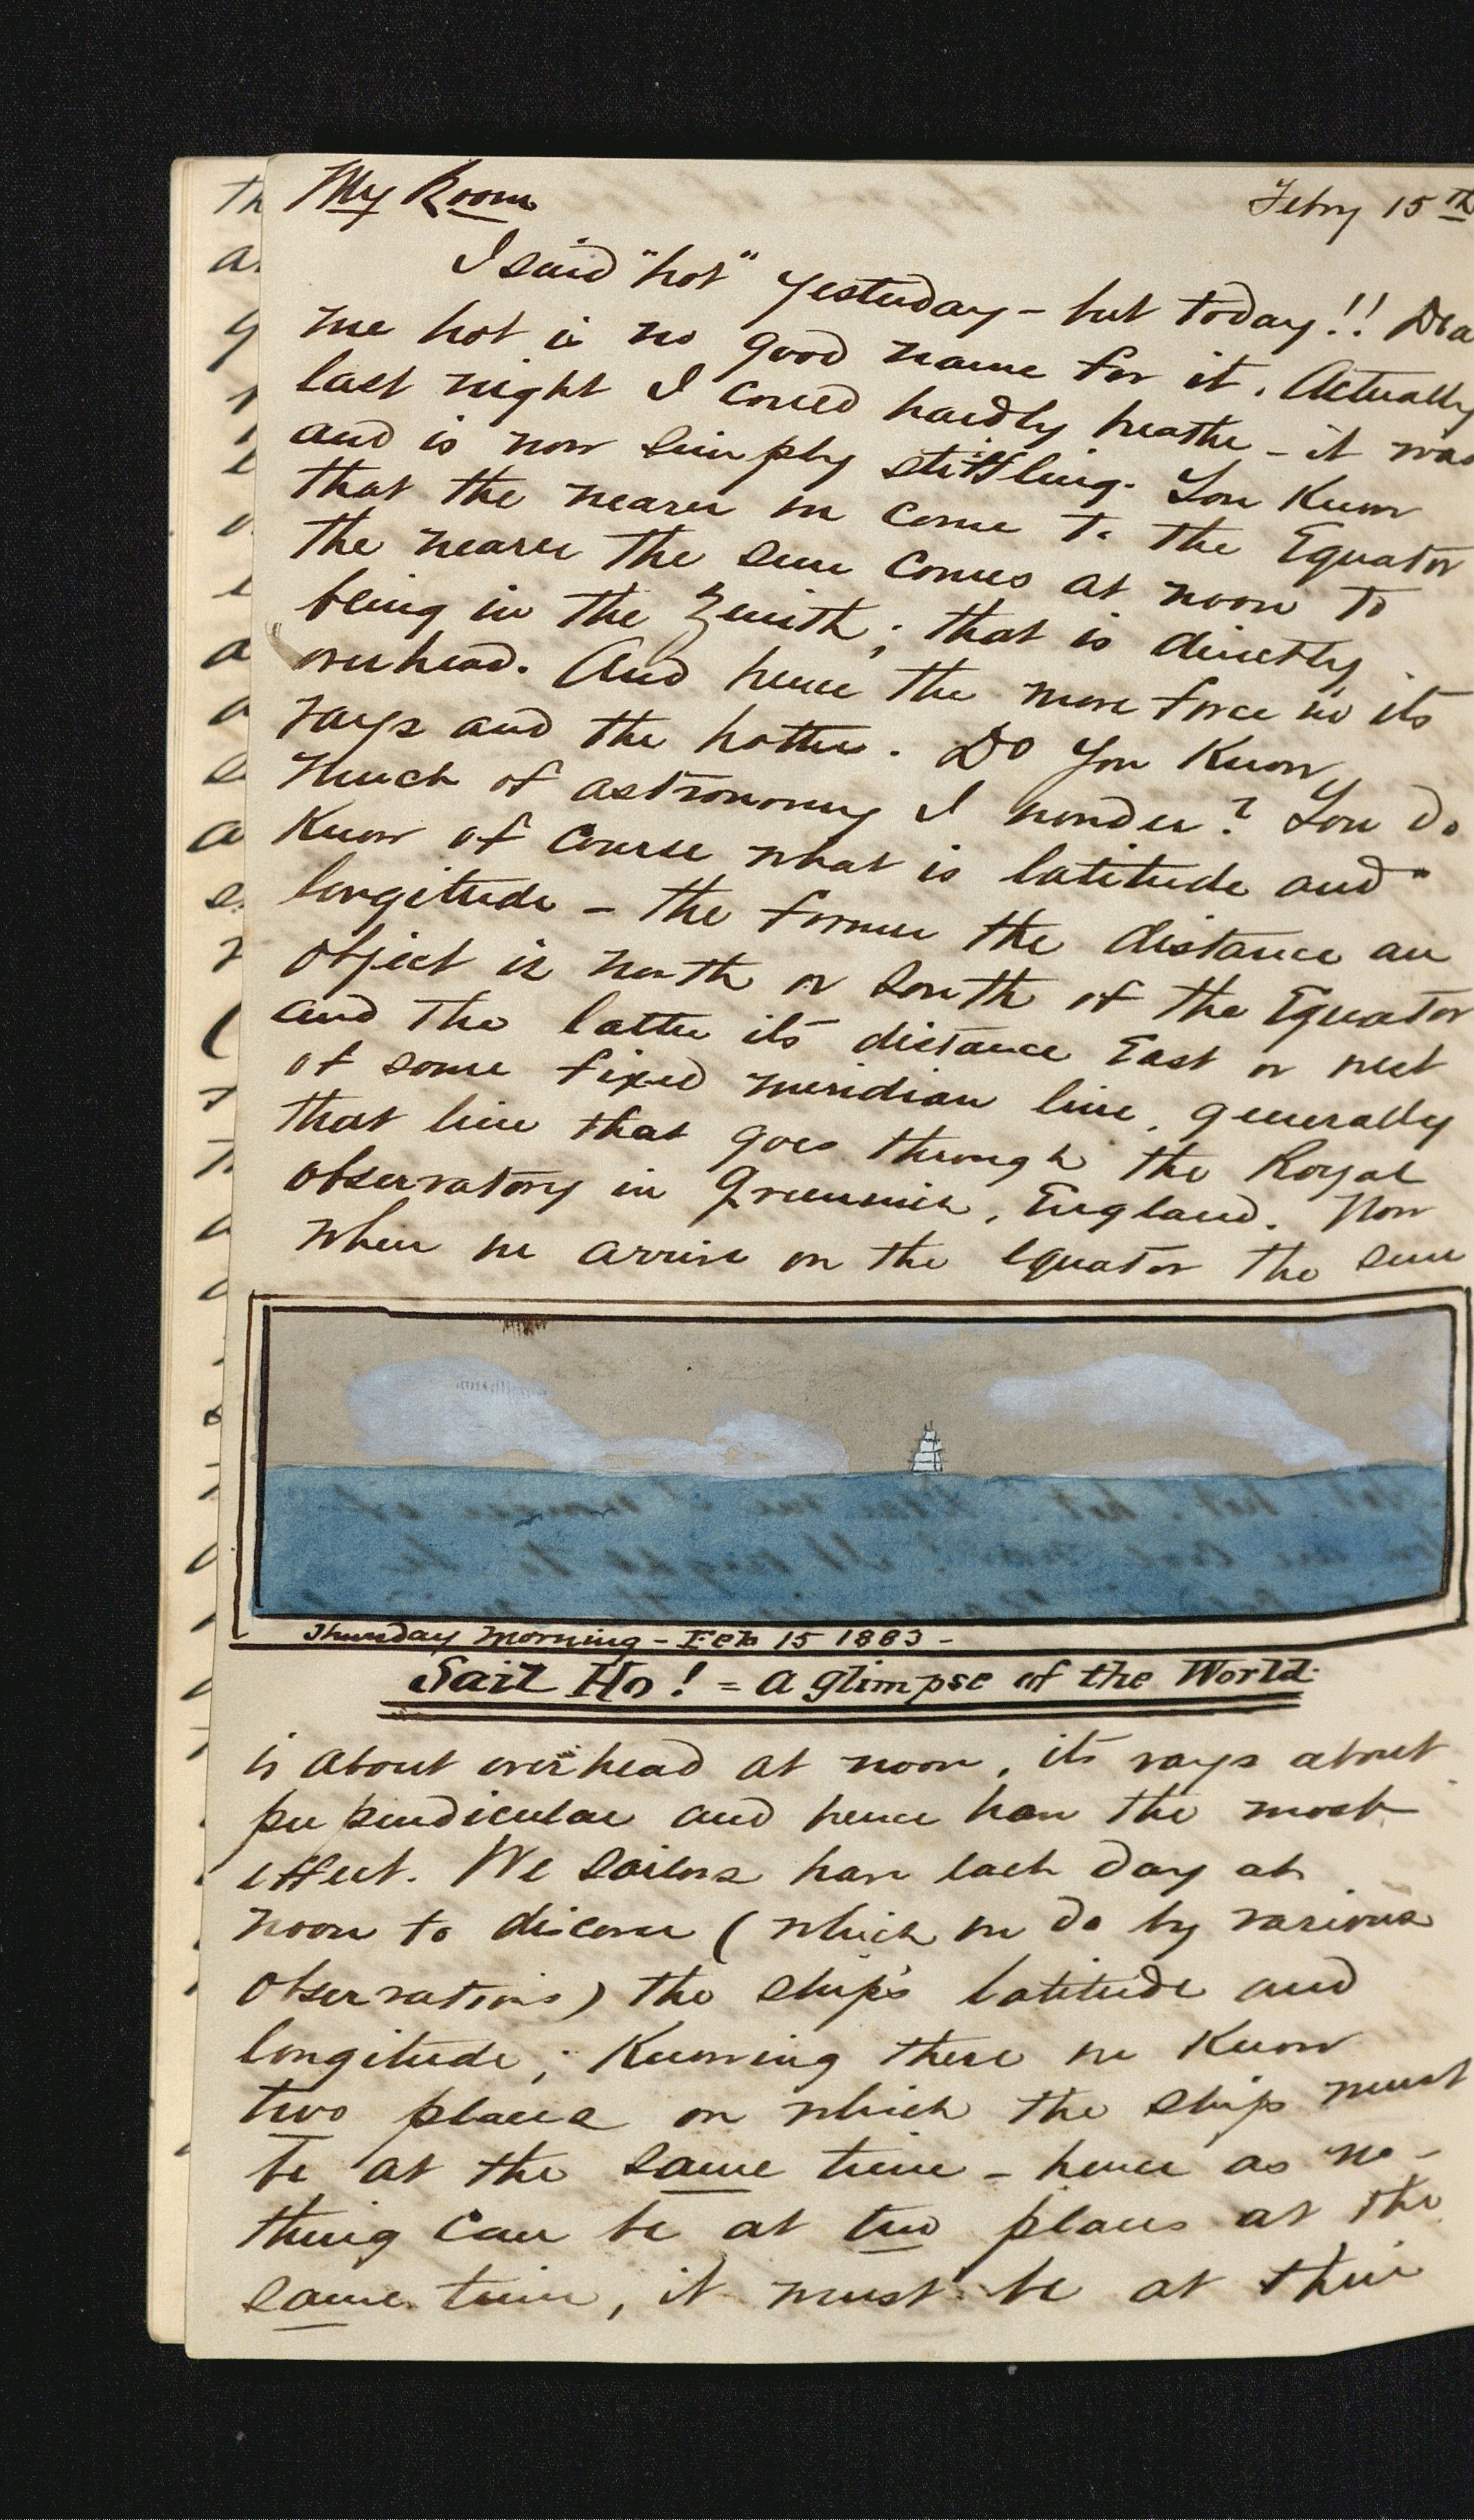 My Room Febry 15th
I said "hot" yesterday - but today!! Dea
me hot is no good name for it. Actually
last night I could hardly breathe - it was
and is now simply stiffling. You know
that the nearer we come to the Equator
the nearer the sun comes at noon to
being in the Zenith; that is directly
overhead. And hence the more force in its
rays and the hotter. Do you know
much of astronomy I wonder? You do
know of course what is latitude and
longitude - the former the distance an
object is north or south of the Equator
and the latter its distance East or west
of some fixed meridian line, generally
that line that goes through the Royal
observatory in Greenwich, England. Now
when we arrive on the equator the sun
Thursday Morning - Feb 15 1883 -
Sail Ho! = a glimpse of the World.
is about overhead at noon, its rays about
perpendicular and hence have the most
effect. We sailors have each day at
noon to discover (which we do by various
observations) the ship's latitude and
longitude; knowing these we know
two places on which the ship must
be at the same time - hence as no-
thing can be at two places at the
same time, it must be at their